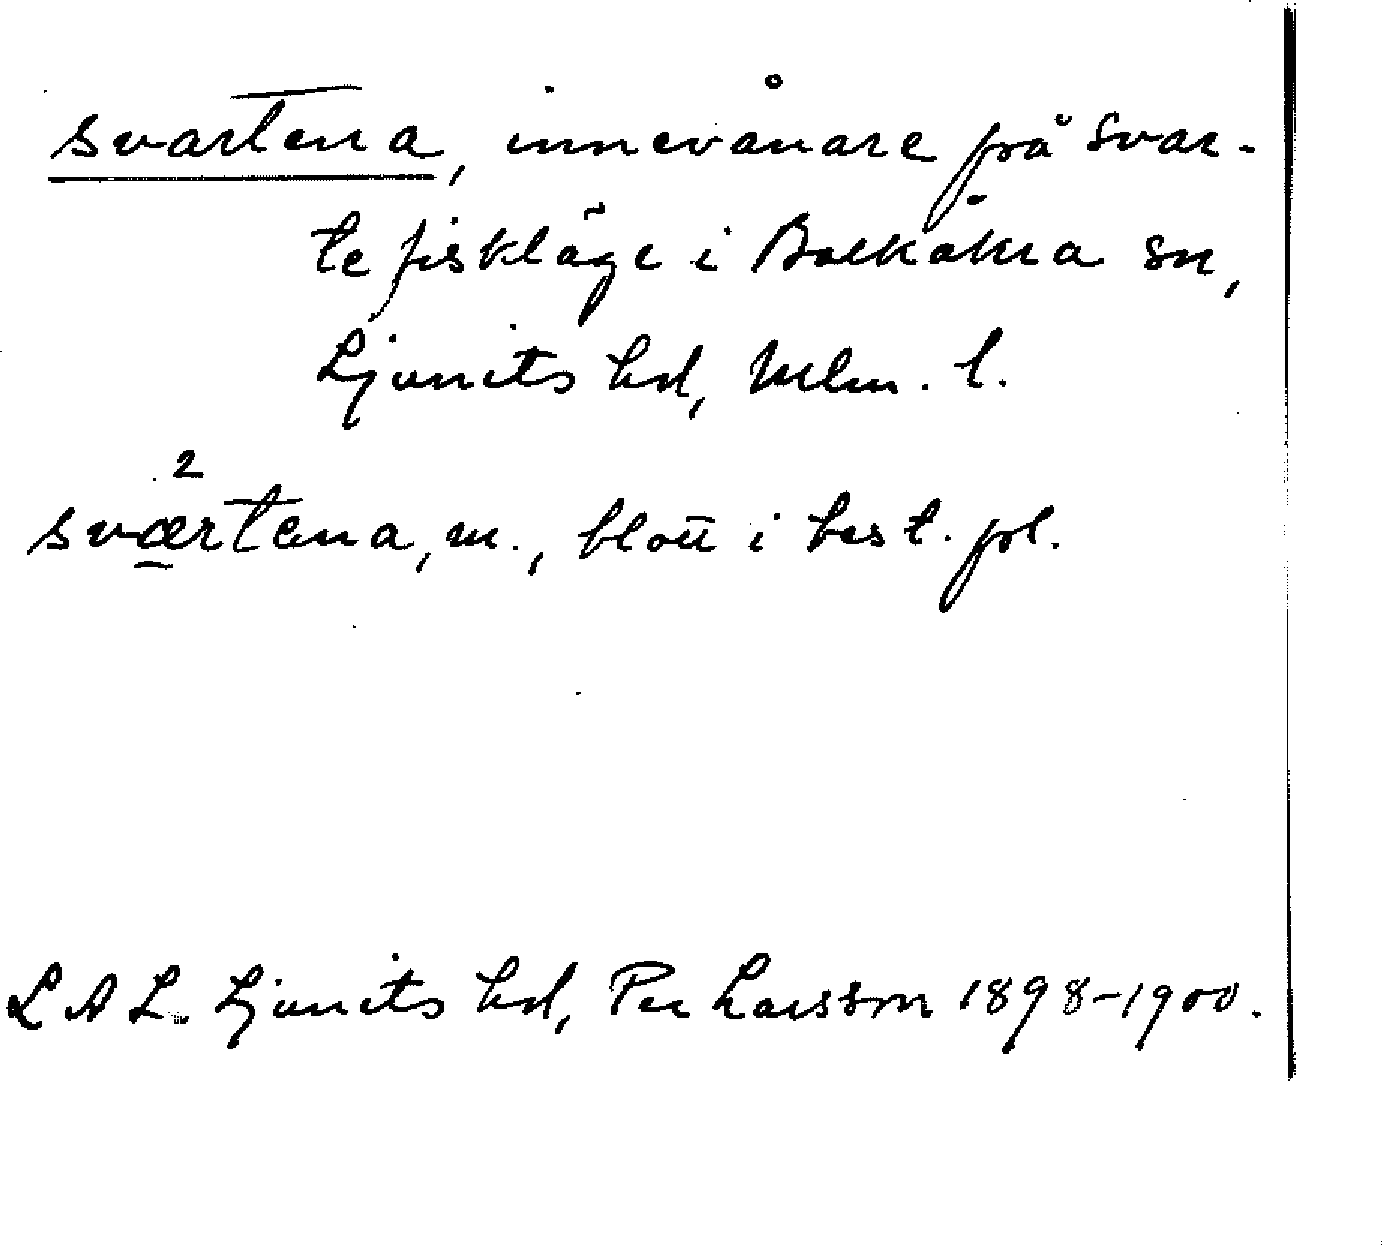 svartena, innevånare på Svar-
te fiskläge i Balkåkra sn,
Ljunits hd, Mlm. l.
svær²tena, m., blott i best. pl.
LAL. Ljunits hd, Per Larsson 1898-1900.